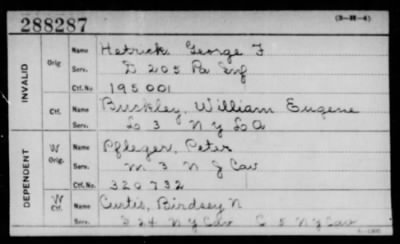 288287
(3-H-4)
INVALID
Orig.
Name Hetrick George F
Serv. D 205 Pa Inf
Ctf. No. 195001
Ctf.
Name Buckley, William Eugene
Serv. L 3 N Y L A
DEPENDENT
W
Orig.
Name Pfleger, Peter
Serv. M 3 N J Cav
Ctf. No. 320732
W
Ctf.
Name Curtis, Birdsey N
24 N Y Cav C 5 N Y Cav